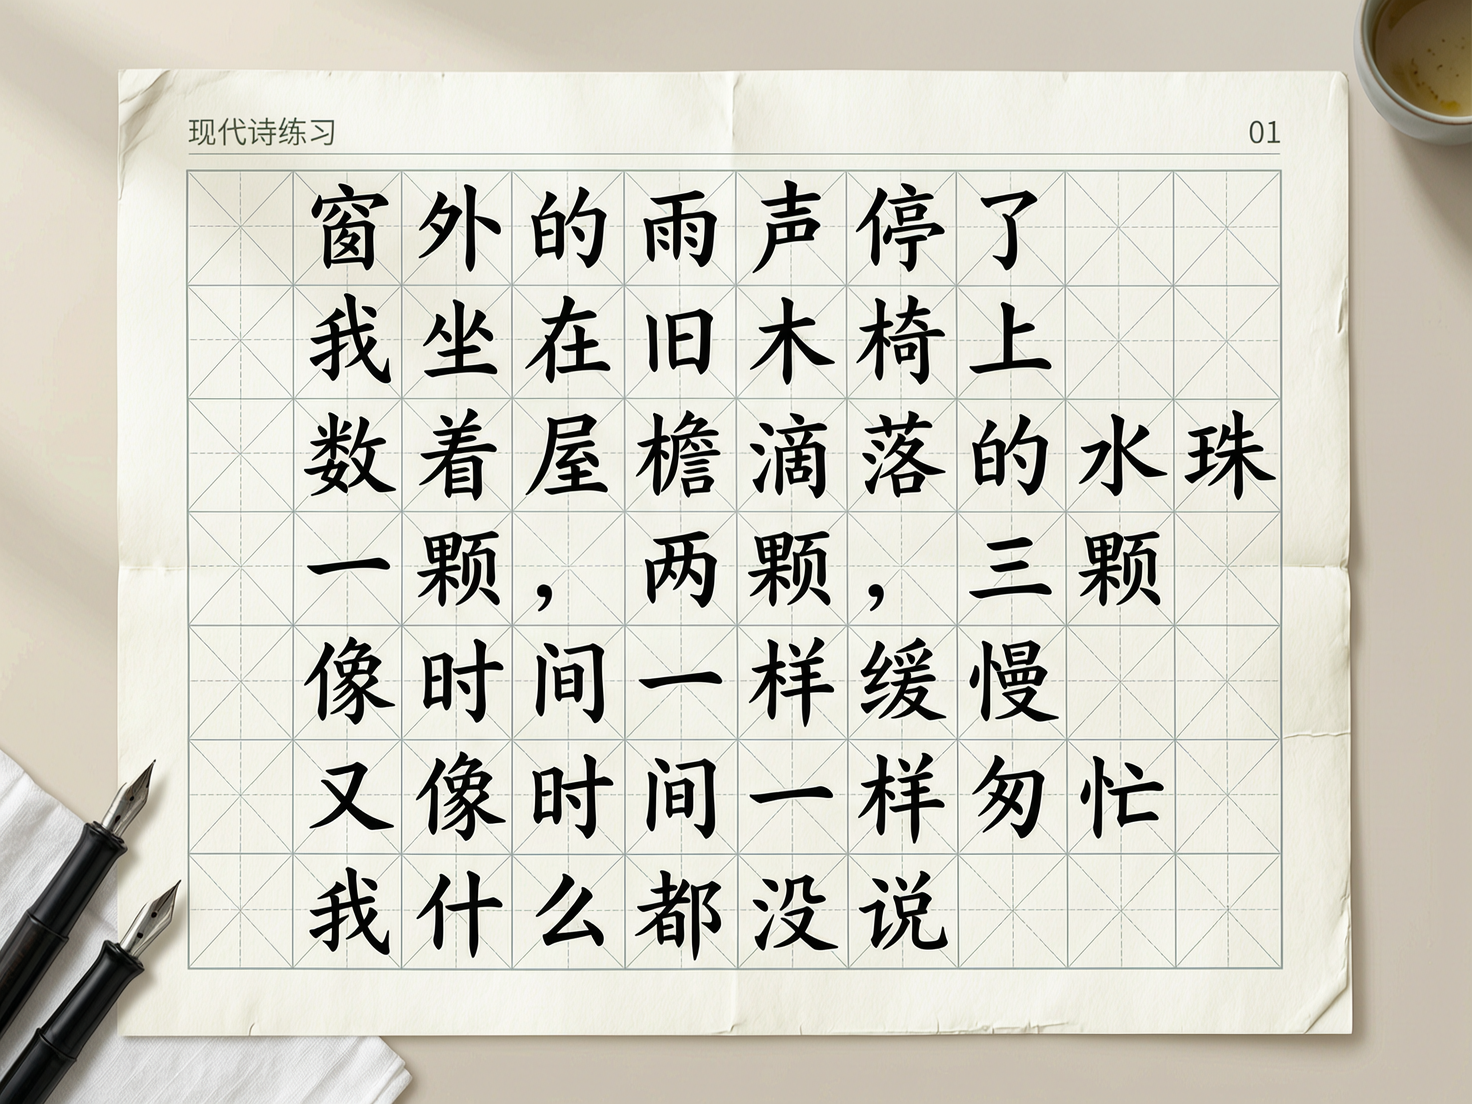 现代诗练习 01
窗外的雨声停了
我坐在旧木椅上
数着屋檐滴落的水珠
一颗，两颗，三颗
像时间一样缓慢
又像时间一样匆忙
我什么都没说